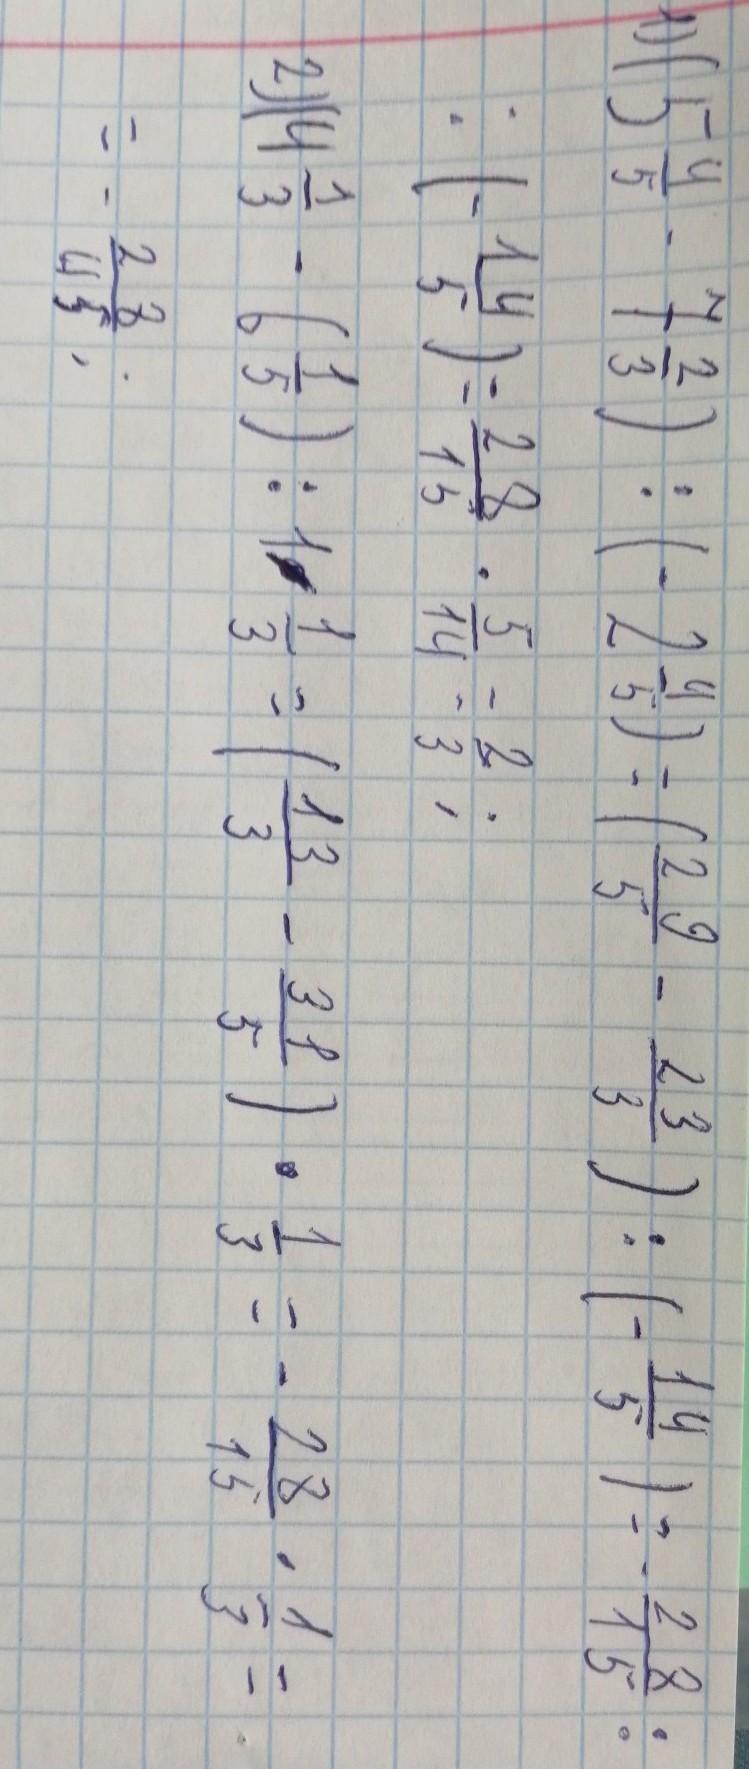 1) (5 4/5 - 7 2/3) : (- 2 4/5) = (29/5 - 23/3) : (- 14/5) = - 28/15 :
: (- 14/5) = 28/15 · 5/14 = 2/3 ;
2) (4 1/3 - 6 1/5) : 1/3 = (13/3 - 31/5) · 1/3 = - 28/15 · 1/3 =
= - 28/45 ;